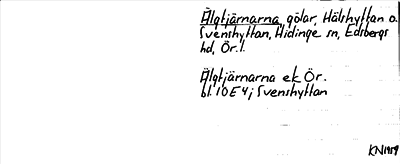 Älgtjärnarna, gölar, Hälshyttan o.
Svenshyttan, Hidinge sn, Edsbergs
hd, Ör.l.
Älgtjärnarna ek Ör.
bl. 10E4j Svenshyttan
KN1959